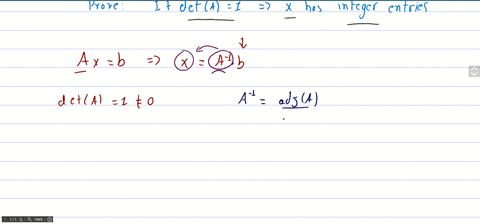 Prove: If det(A) = 1 => x has integer entries
Ax = b => x = A⁻¹b
det(A) = 1 ≠ 0 A⁻¹ = adj(A)